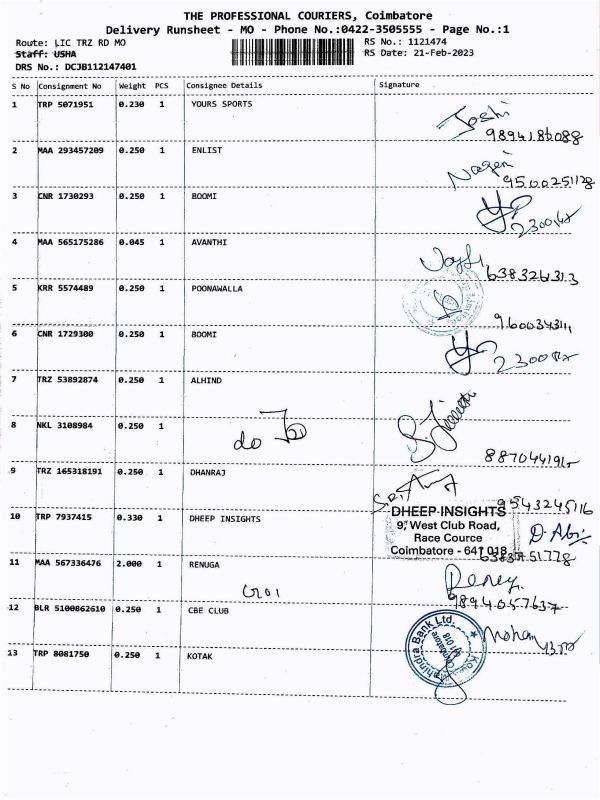 THE PROFESSIONAL COURIERS, Coimbatore
Delivery Runsheet - MO - Phone No.:0422-3505555 - Page No.:1
Route: LIC TRZ RD MO
RS No.: 1121474
Staff: USHA
RS Date: 21-Feb-2023
DRS No.: DCJB112147401
S No Consignment No Weight PCS Consignee Details Signature
1 TRP 5071951 0.230 1 YOURS SPORTS
Joshi
9894186088
2 MAA 293457209 0.250 1 ENLIST
Nagen
9500251128
3 CNR 1730293 0.250 1 BOOMI
4 MAA 565175286 0.045 1 AVANTHI
6383261313
5 KRR 5574489 0.250 1 POONAWALLA
6 CNR 1729300 0.250 1 BOOMI
7 TRZ 53892874 0.250 1 ALHIND
8 NKL 3108984 0.250 1
do
9 TRZ 165318191 0.250 1 DHANRAJ
9543245116
10 TRP 7937415 0.330 1 DHEEP INSIGHTS
DHEEP INSIGHTS
9, West Club Road,
Race Cource
Coimbatore - 641 018
D. Abi
11 MAA 567336476 2.000 1 RENUGA
9894057637
12 BLR 5100862610 0.250 1 CBE CLUB
Mohan
13 TRP 8081750 0.250 1 KOTAK
Mahindra Bank Ltd.